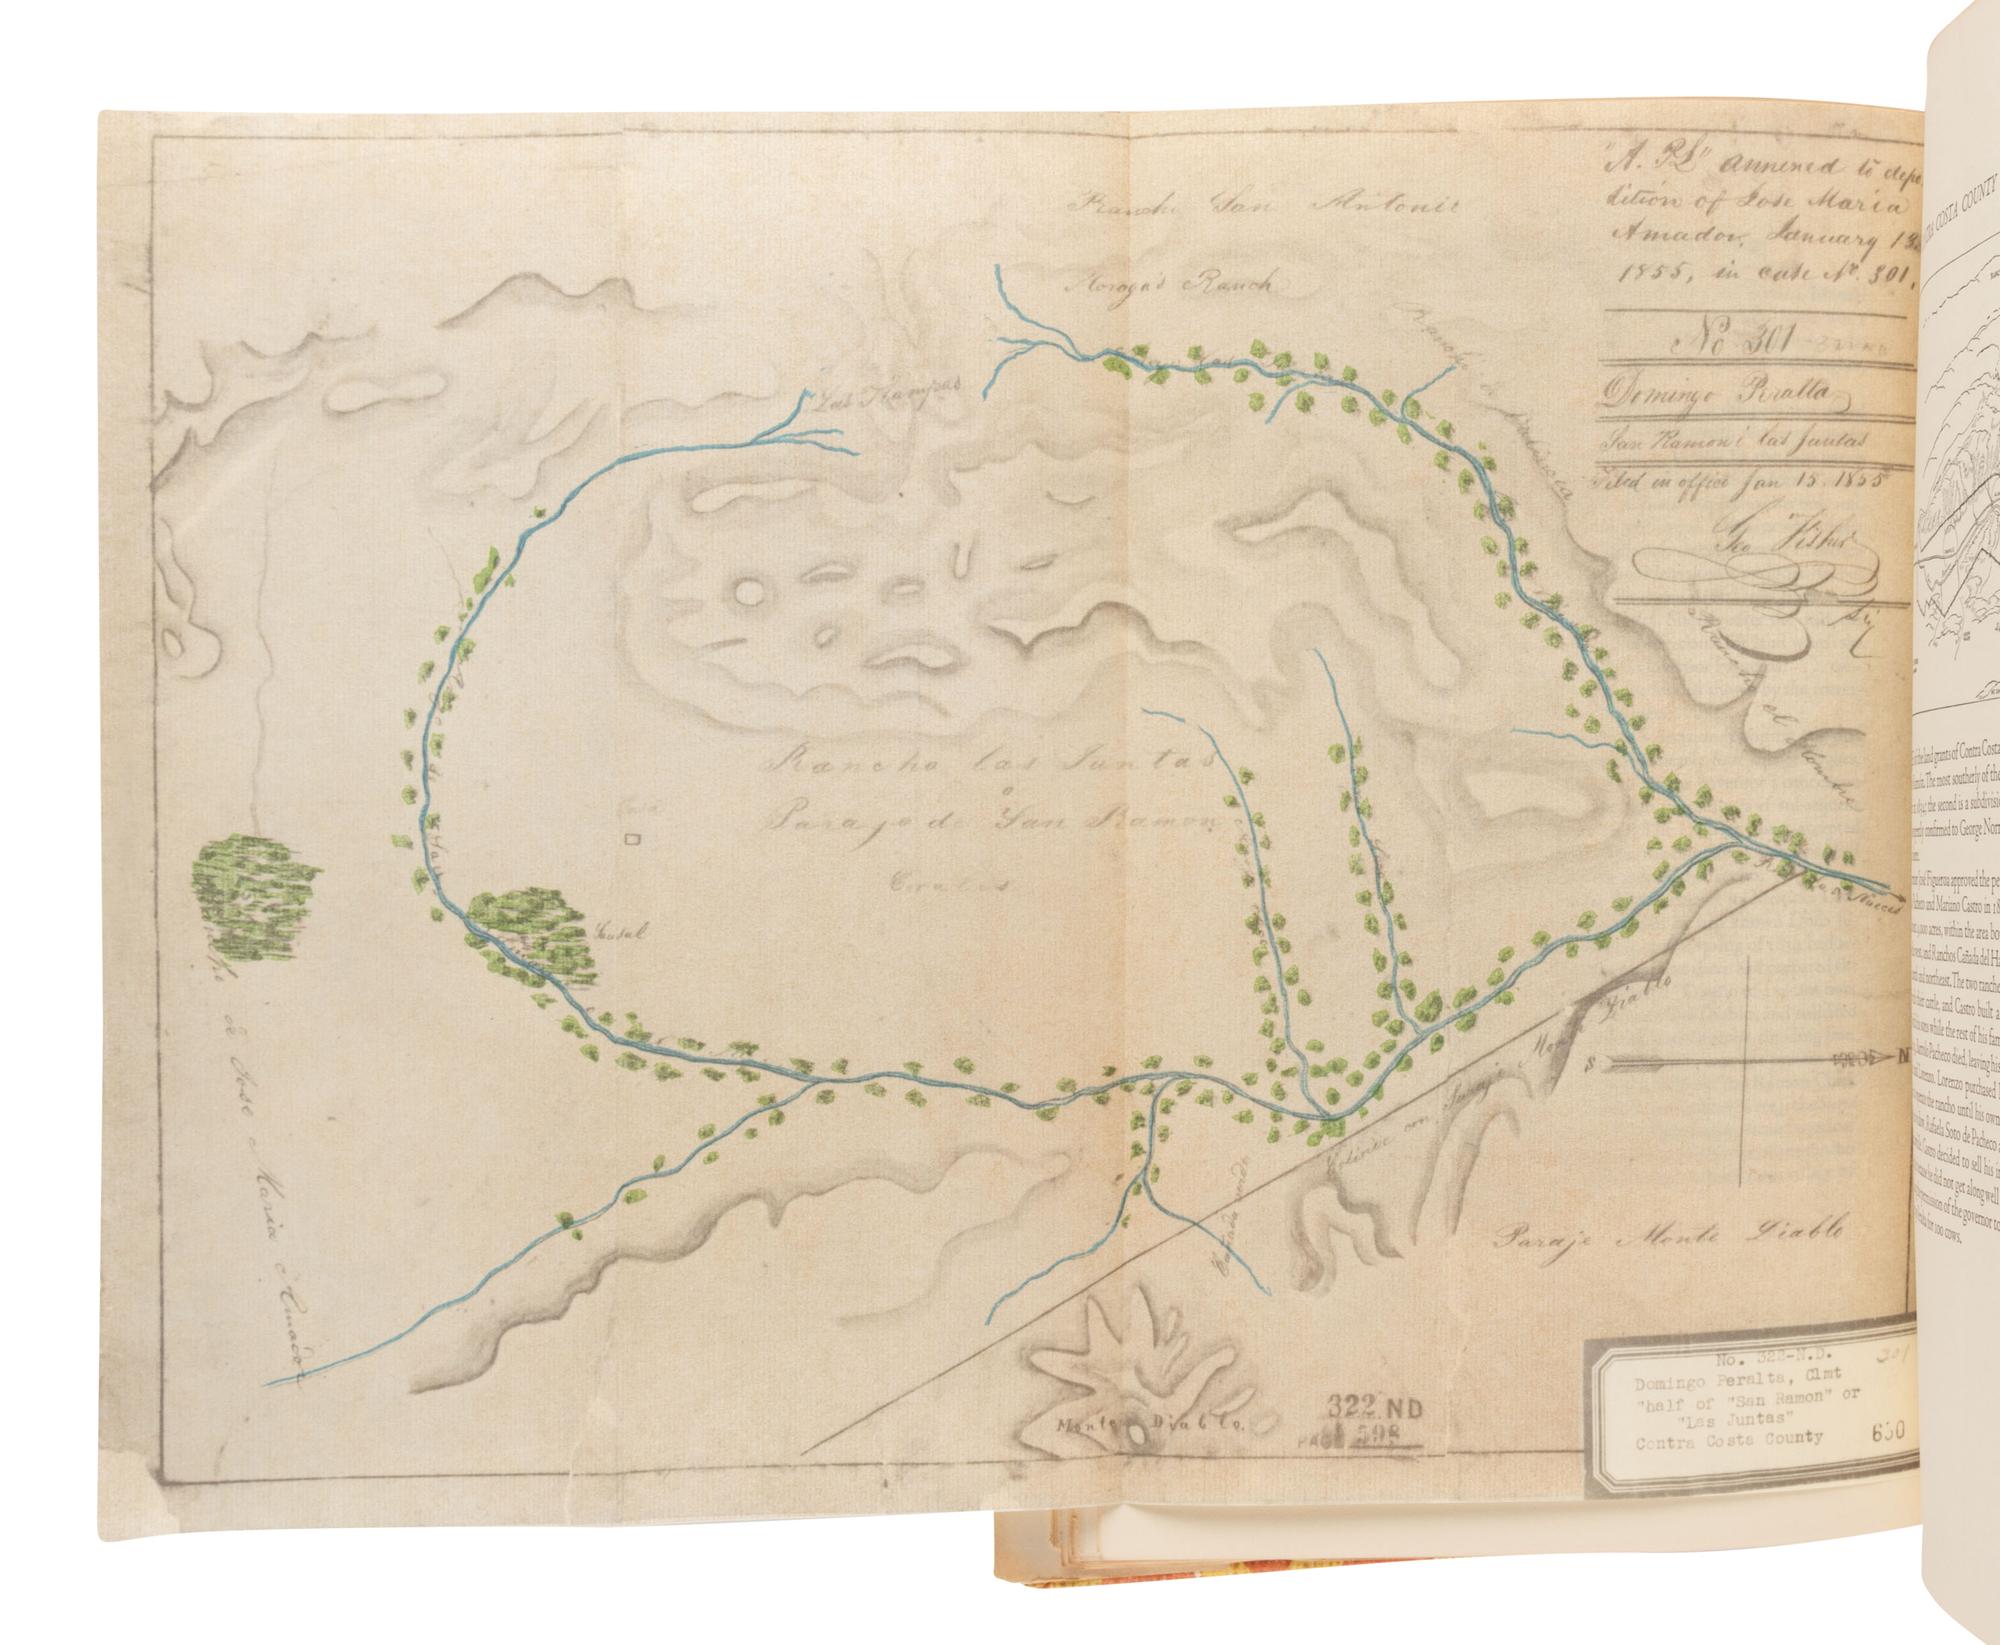 Rancho San Antonio
Moraga's Ranch
"A. P.L" annexed to depo
sition of Jose Maria
Amador, January 13
1855, in case No. 301.
No 301
Domingo Peralta
San Ramon i las Juntas
Filed in office Jan 15. 1855
Geo Fisher
Sey
Las Trampas
Rancho
Rancho el
Rancho las Juntas
Parajo de San Ramon
Corales
Casa
Sausal
de Jose Maria Amador
Nueces
Colinde con Paraje Monte Diablo
Cañada
S
N
Paraje Monte Diablo
Monte Diablo.
322 ND
PAGE 598
No. 322-N.D.
301
Domingo Peralta, Clmt
"half of "San Ramon" or
"Las Juntas"
Contra Costa County
650
COSTA COUNTY
the land grants of Contra Costa
The most southerly of the
the second is a subdivisi
confirmed to George Nor
José Figueroa approved the pe
and Mariano Castro in 18
acres, within the area bo
and Ranchos Cañada del H
and northeast. The two ranche
cattle, and Castro built a
while the rest of his fam
Pacheco died, leaving his
Lorenzo. Lorenzo purchased
the rancho until his own
Rafaela Soto de Pacheco
Castro decided to sell his in
he did not get along well
permission of the governor to
for 100 cows.